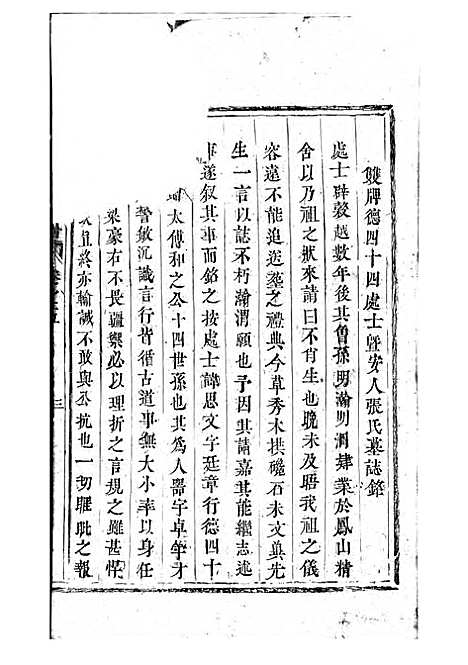 雙牌德四十四處士曁安人張氏墓誌銘
處士辟穀越數年後其魯孫明瀚明澗肄業於鳳山精
舍以乃祖之狀來請曰不肖生也晚未及晤我祖之儀
容遠不能追逰塟之禮典今草秀木拱磯石未文奠先
生一言以誌不朽瀚渭願也予因其請嘉其能繼志述
事遂叙其事而銘之按處士諱思文字廷章行德四十
太傅和之公十四世孫也其為人器宇卓犖才
警敏沉識言行皆循古道事無大小率以身任
梁豪右不畏疆禦必以理折之言規之雖甚悍
且終亦輸誠不敢與公抗也一切睚眦之報
三